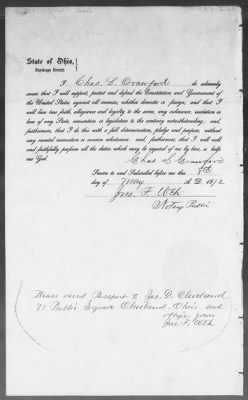 State of Ohio,
Cuyahoga County
I Chas. L. Crawford do solemnly
swear that I will support, protect and defend the Constitution and Government of
the United States against all enemies, whether domestic or foreign, and that I
will bear true faith, allegiance and loyalty to the same, any ordinance, resolution or
law of any State, convention or legislature to the contrary notwithstanding, and,
furthermore, that I do this with a full determination, pledge and purpose, without
any mental reservation or evasion whatsoever and, furthermore, that I will well
and faithfully perform all the duties which may be required of me by law, so help
me God.
Chas L Crawford
Sworn to and Subscribed before me this 8th
day of May A. D. 1872
Jno. F.
Notary Public
Please send Passport to Jas. D. Cleveland
71 Public Square Cleveland, Ohio and
oblige yours
Jno. F.